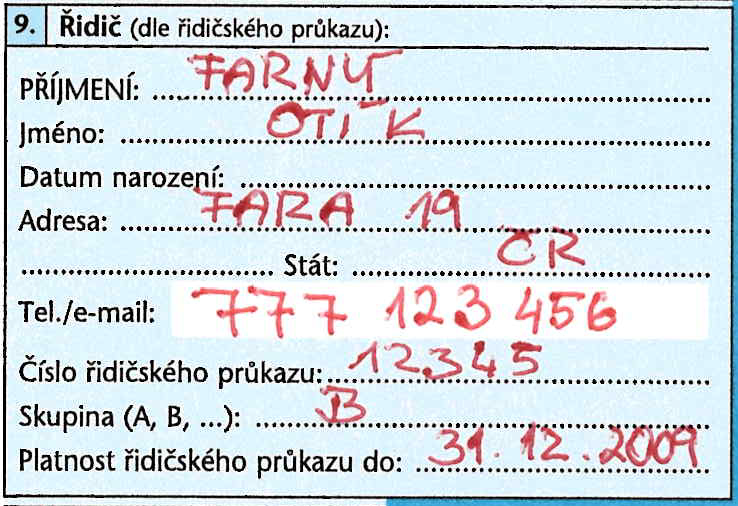 9. Řidič (dle řidičského průkazu):
PŘÍJMENÍ: FARNÝ
Jméno: OTÍK
Datum narození:
Adresa: FARA 19
Stát: ČR
Tel./e-mail: 777 123 456
Číslo řidičského průkazu: 12345
Skupina (A, B, ...): B
Platnost řidičského průkazu do: 31. 12. 2009